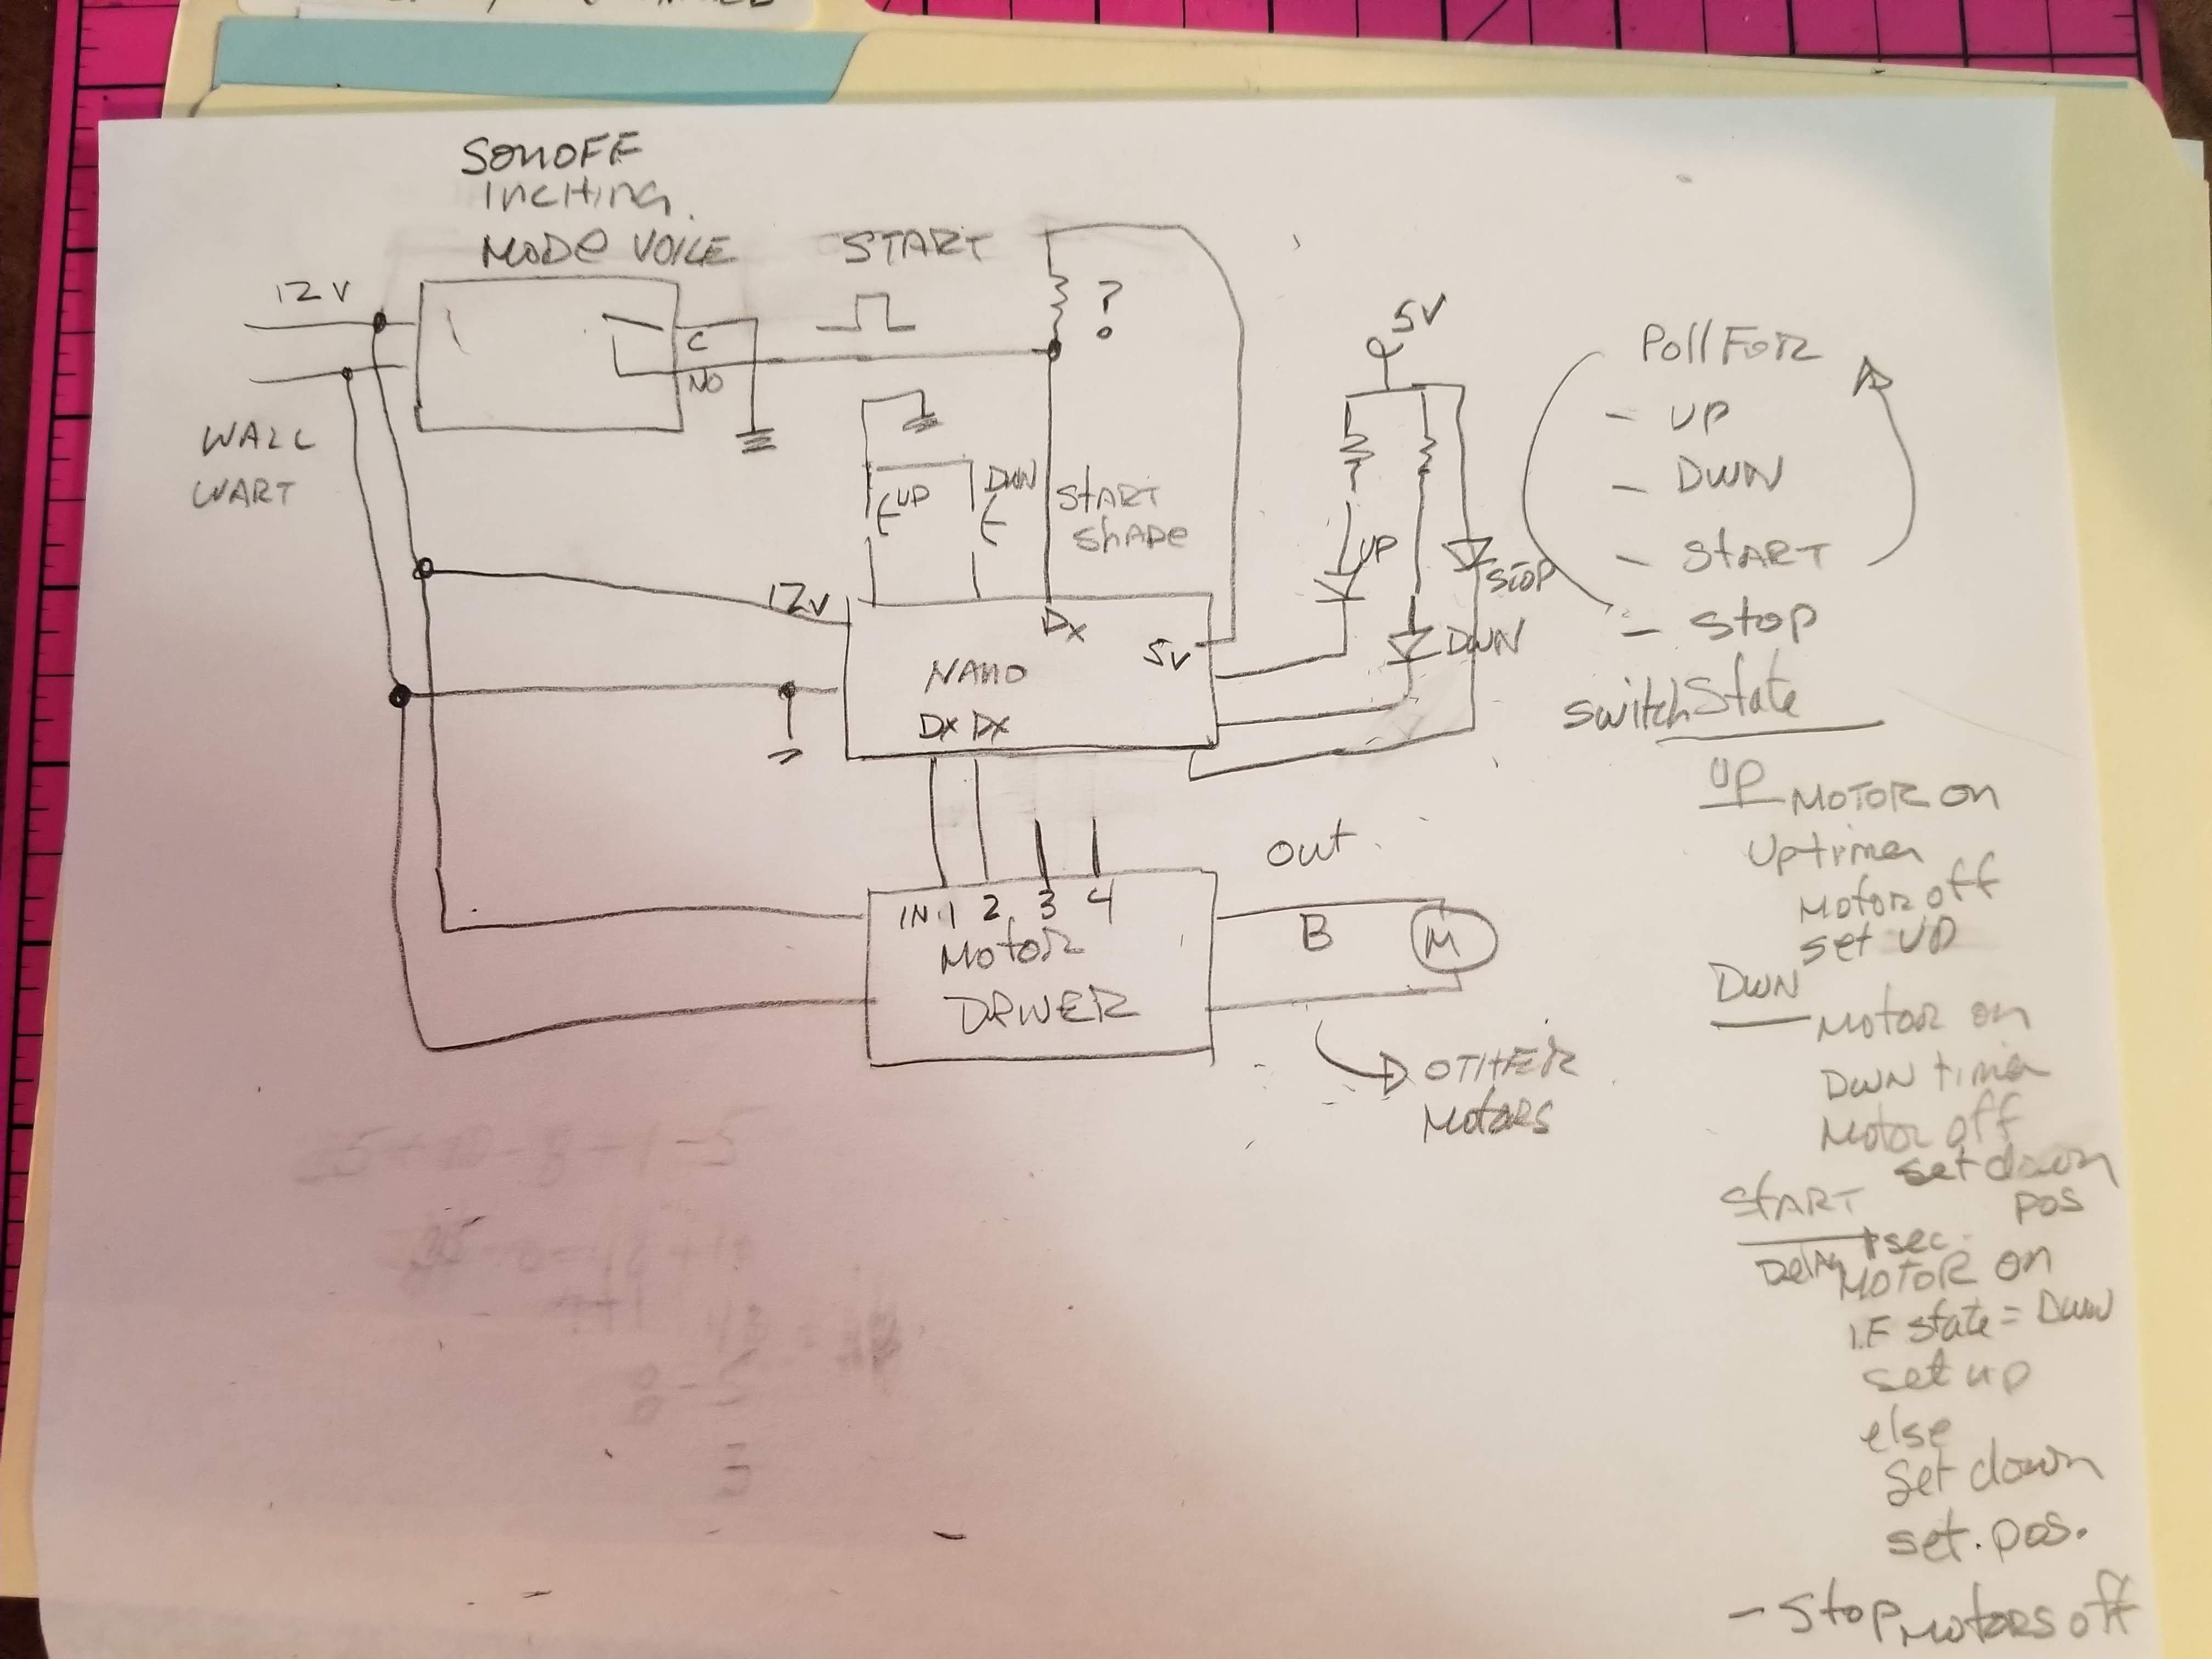 SONOFF
INCHING.
MODE VOICE
START
12V
C
NO
?
WALL
WART
UP
DWN
START
SHAPE
5V
UP
STOP
DWN
12V
DX
5V
NANO
DX DX
IN.1 2 3 4
MOTOR
DRIVER
out.
B
M
OTHER
MOTORS
Poll FOR
- UP
- DWN
- START
- Stop
switch State
UP
MOTOR on
Up timer
Motor off
set UP
DWN
MOTOR on
DWN timer
Motor off
set down
pos
START
Delay 1 sec.
MOTOR on
IF state = DWN
set up
else
set down
set. pos.
- Stop MOTORS off